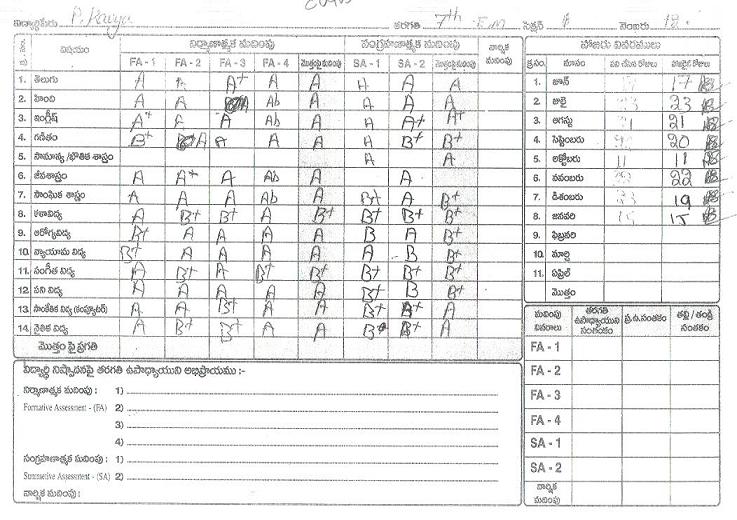 విద్యార్థి పేరు P. Kavya తరగతి 7th E.M సెక్షన్ నెంబరు 12.
క్ర.సం. విషయం నిర్మాణాత్మక మదింపు సంగ్రహణాత్మక మదింపు వార్షిక మదింపు
FA - 1 FA - 2 FA - 3 FA - 4 మొత్తంపై మదింపు SA - 1 SA - 2 మొత్తంపై మదింపు
1. తెలుగు A A A+ A A A A A
2. హింది A A A Ab A A A A
3. ఇంగ్లీష్ A+ A A Ab A A A+ A+
4. గణితం B+ A A A A A B+ B+
5. సామాన్య /భౌతిక శాస్త్రం A A
6. జీవశాస్త్రం A A+ A Ab A A A
7. సాంఘిక శాస్త్రం A A A Ab A B+ A B+
8. కళావిద్య A B+ B+ A B+ B+ B+ B+
9. ఆరోగ్యవిద్య B+ A A A A B A B+
10. వ్యాయామ విద్య B+ A A A A A B B+
11. సంగీత విద్య A B+ A B+ B+ B+ B+ B+
12. పని విద్య A A A A A B+ B B+
13. సాంకేతిక విద్య (కంప్యూటర్) A A B+ A A B+ B+ A
14. నైతిక విద్య A B+ B+ A A B+ B+ A
మొత్తం పై ప్రగతి
హాజరు వివరములు
క్ర.సం. మాసం పని చేసిన రోజులు హాజరైన రోజులు
1. జూన్ 17
2. జులై 23 23
3. ఆగస్టు 21 21
4. సెప్టెంబరు 20
5. అక్టోబరు 11 11
6. నవంబరు 22
7. డిశంబరు 23 19
8. జనవరి 15 15
9. ఫిబ్రవరి
10. మార్చి
11. ఏప్రిల్
మొత్తం
మదింపు వివరాలు తరగతి ఉపాధ్యాయుని సంతకం ప్ర.ఉ.సంతకం తల్లి / తండ్రి సంతకం
FA - 1
FA - 2
FA - 3
FA - 4
SA - 1
SA - 2
వార్షిక మదింపు
విద్యార్థి నిష్పాదనపై తరగతి ఉపాధ్యాయుని అభిప్రాయము :-
నిర్మాణాత్మక మదింపు : 1)
Formative Assessment - (FA) 2)
3)
4)
సంగ్రహణాత్మక మదింపు : 1)
Summetive Assessment - (SA) 2)
వార్షిక మదింపు :